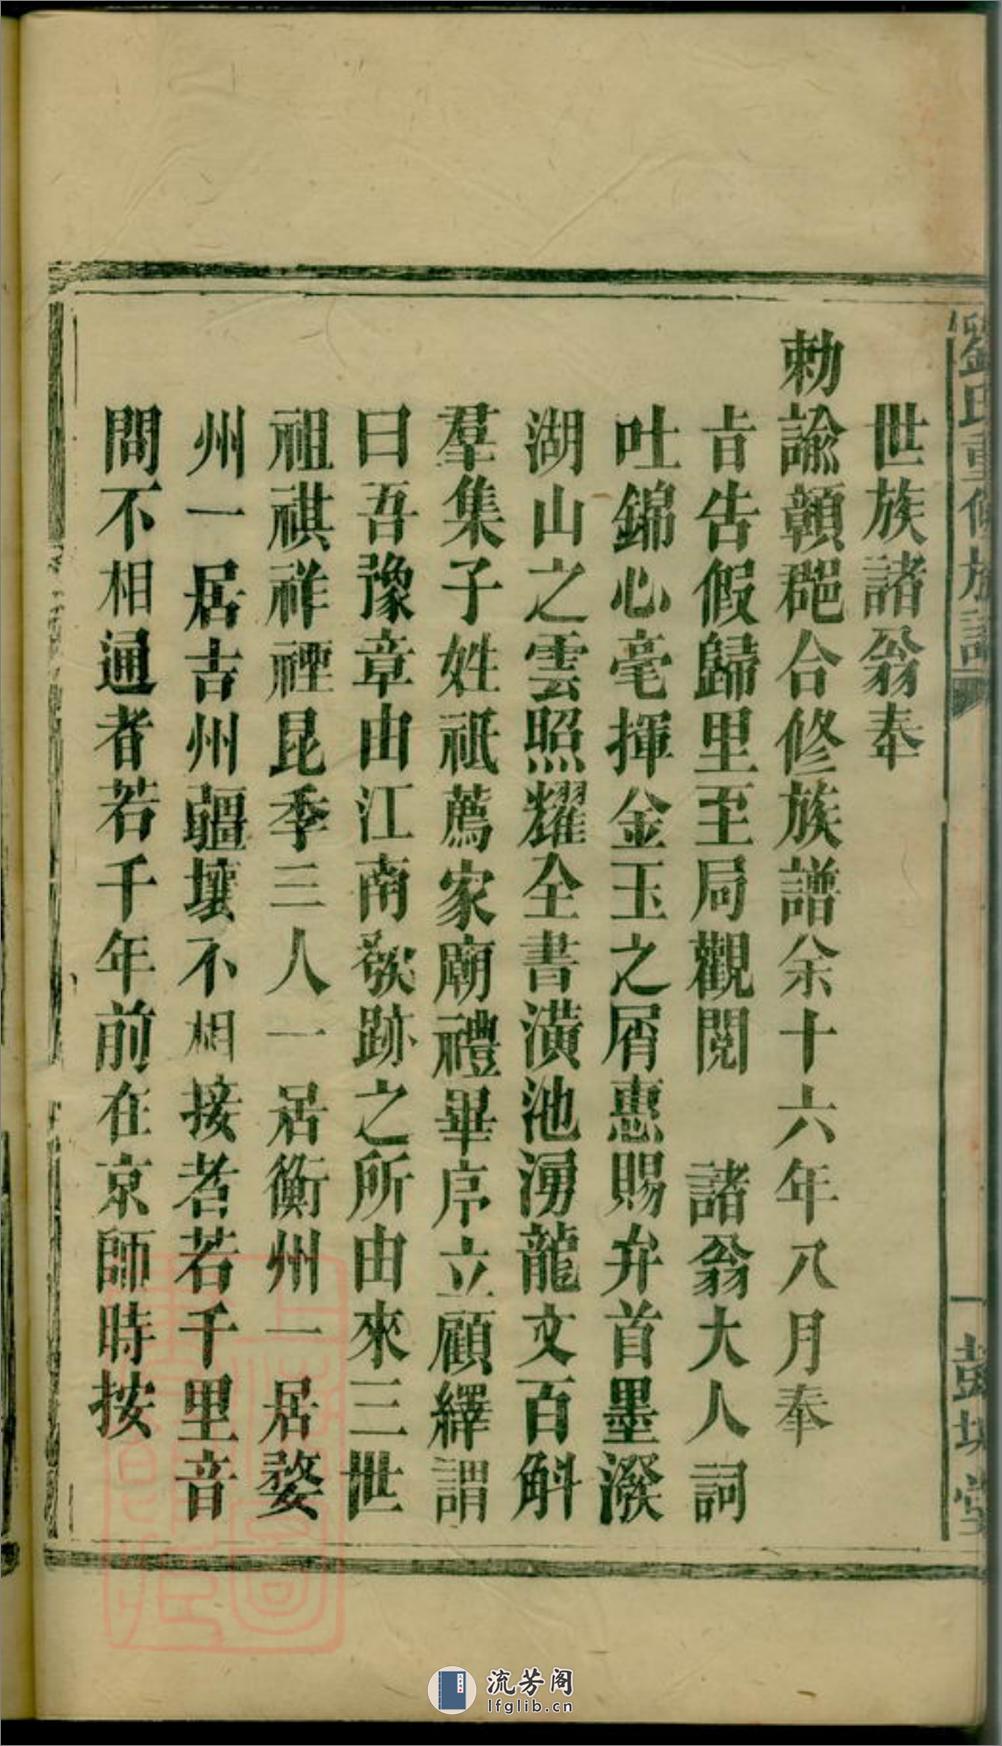 劉氏重修族譜
一
彭城堂
世族諸翁奉
勅諭贑郡合修族譜余十六年八月奉
旨告假歸里至局觀閱　諸翁大人詞
吐錦心毫揮金玉之屑惠賜弁首墨潑
湖山之雲照耀全書潢池湧龍文百斛
羣集子姓祇薦家廟禮畢序立顧繹謂
曰吾豫章由江南發跡之所由來三世
祖祺祥禋昆季三人一居衡州一居婺
州一居吉州疆壤不相接者若千里音
問不相通者若千年前在京師時按
流芳阁
lfglib.cn